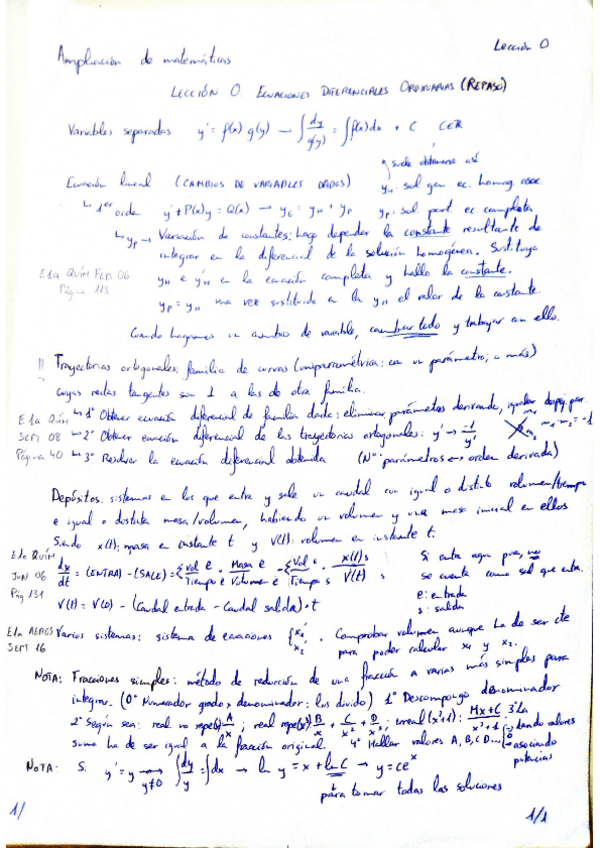 Lección 0
Ampliación de matemáticas
LECCIÓN 0. ECUACIONES DIFERENCIALES ORDINARIAS (REPASO)
Variables separadas y' = f(x) g(y) → ∫ dy/g(y) = ∫ f(x)dx + C C∈R
suele obtenerse así
Ecuación lineal (CAMBIOS DE VARIABLES DADOS) y_H: sol gen ec. homog. asoc.
↳ 1er orden y' + P(x)y = Q(x) → y_G = y_H + y_P y_P: sol part. ec. completa
↳ y_P → Variación de constantes: hago depender la constante resultante de
integrar en la diferencial de la solución homogénea. Sustituyo
y_H e y'_H en la ecuación completa y hallo la constante.
E1a QUÍM FEB 06
Página 113
y_P = y_H una vez sustituido en la y_H el valor de la constante
Cuando hagamos un cambio de variable, cambiar todo y trabajar con ello.
!! Trayectorias ortogonales: familia de curvas (uniparamétrica: con un parámetro; o más)
cuyas rectas tangentes son ⊥ a las de otra familia.
E1a Quím ↳ 1º Obtener ecuación diferencial de familia dada: eliminar parámetros derivando, igualar despej. par.
SEPT 08 ↳ 2º Obtener ecuación diferencial de las trayectorias ortogonales: y' → -1/y' m₁ m₂ m₁·m₂ = -1
Página 40 ↳ 3º Resolver la ecuación diferencial obtenida (Nº parámetros ↔ orden derivada)
Depósitos: sistemas en los que entra y sale un caudal con igual o distinto volumen/tiempo
e igual o distinta masa/volumen, habiendo un volumen y una masa inicial en ellos
Siendo x(t): masa en instante t y V(t): volumen en instante t.
E1a QUÍM
JUN 06
Pág 131
dx/dt = (ENTRA) - (SALE) = Σ Vol e/Tiempo e · Masa e/Volumen e - Σ Vol s/Tiempo s · x(t)s/V(t)s
Si entra agua pura, no
se cuenta como sal que entra.
e: entrada
s: salida
V(t) = V(0) - (Caudal entrada - Caudal salida)·t
E1a AEROS Varios sistemas: sistema de ecuaciones { x₁' x₂' . Comprobar volumen aunque ha de ser cte
SEPT 16 para poder calcular x₁ y x₂.
NOTA: Fracciones simples: método de reducción de una fracción a varias más simples para
integrar. (0º Numerador grado > denominador: los divido) 1º Descompongo denominador
2º Según sea: real no repe(x) A/x ; real repe(x³) B/x + C/x² + D/x³ ; irreal (x²+1): Mx+C/x²+1 3º La
suma ha de ser igual a la fracción original. 4º Hallar valores A, B, C, D... dando valores
asociando
potencias
NOTA: Si y' = y → y≠0 ∫ dy/y = ∫ dx → ln y = x + ln C → y = ce^x
para tomar todas las soluciones
1/
1/1